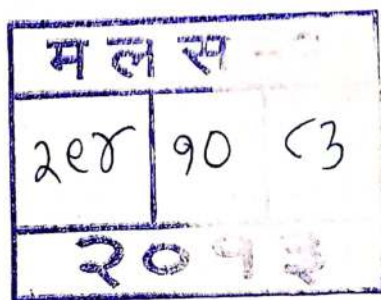 मलस
२९४ १० ८३
२०१३